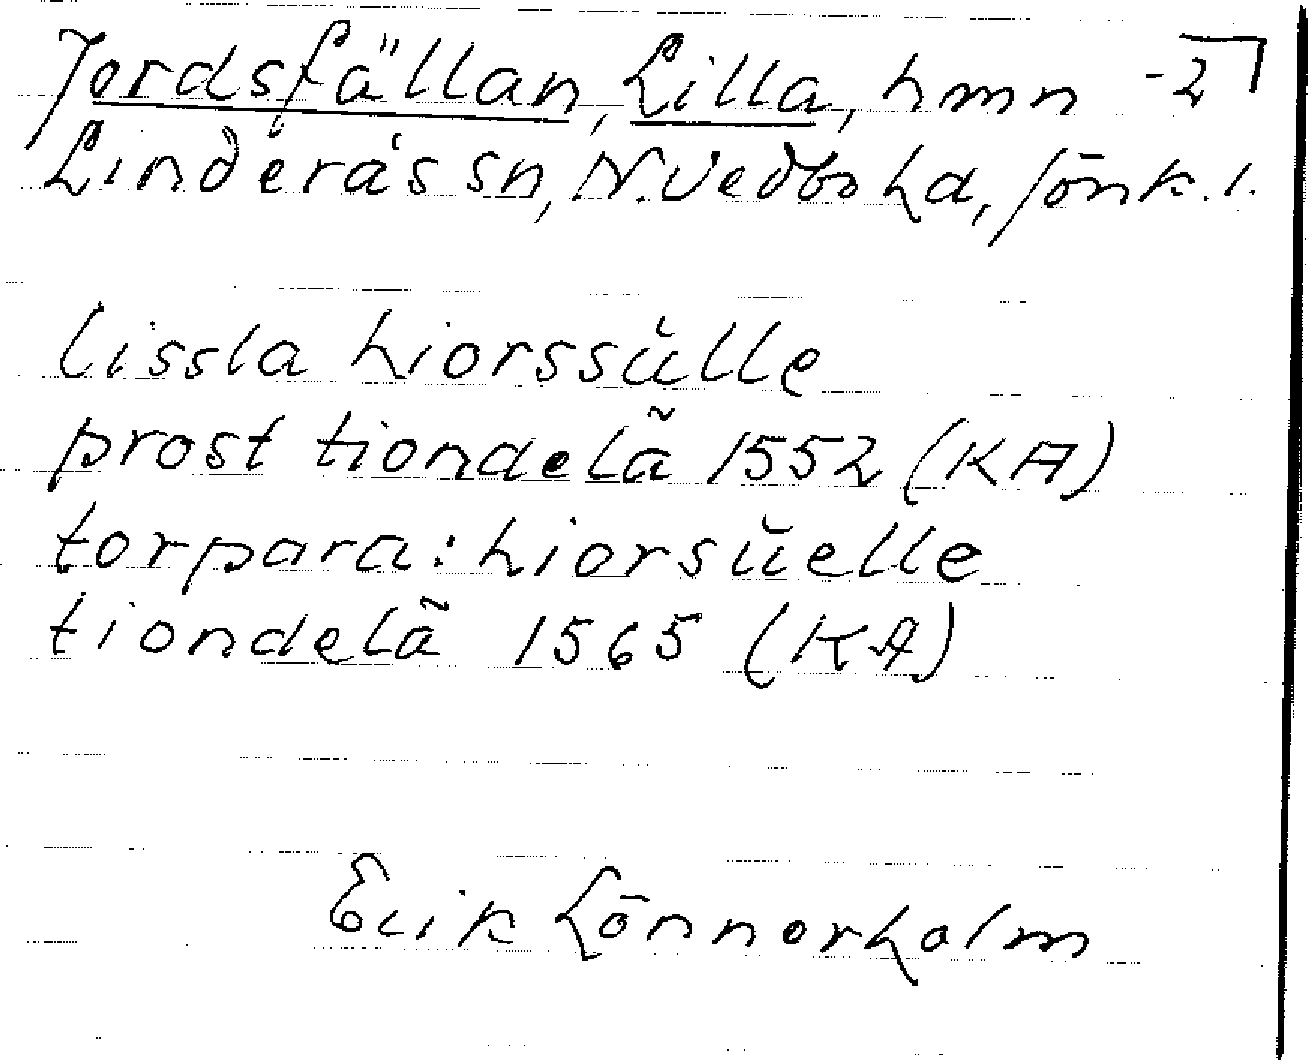 Jordsfällan, Lilla, hmn -2⁊
Linderås sn, N. Vedbo hd, Jönk. l.
lissla hiorssŭlle
prost tiondelã 1552 (KA)
torpara: hiorsŭelle
tiondelã 1565 (KA)
Erik Lönnerholm